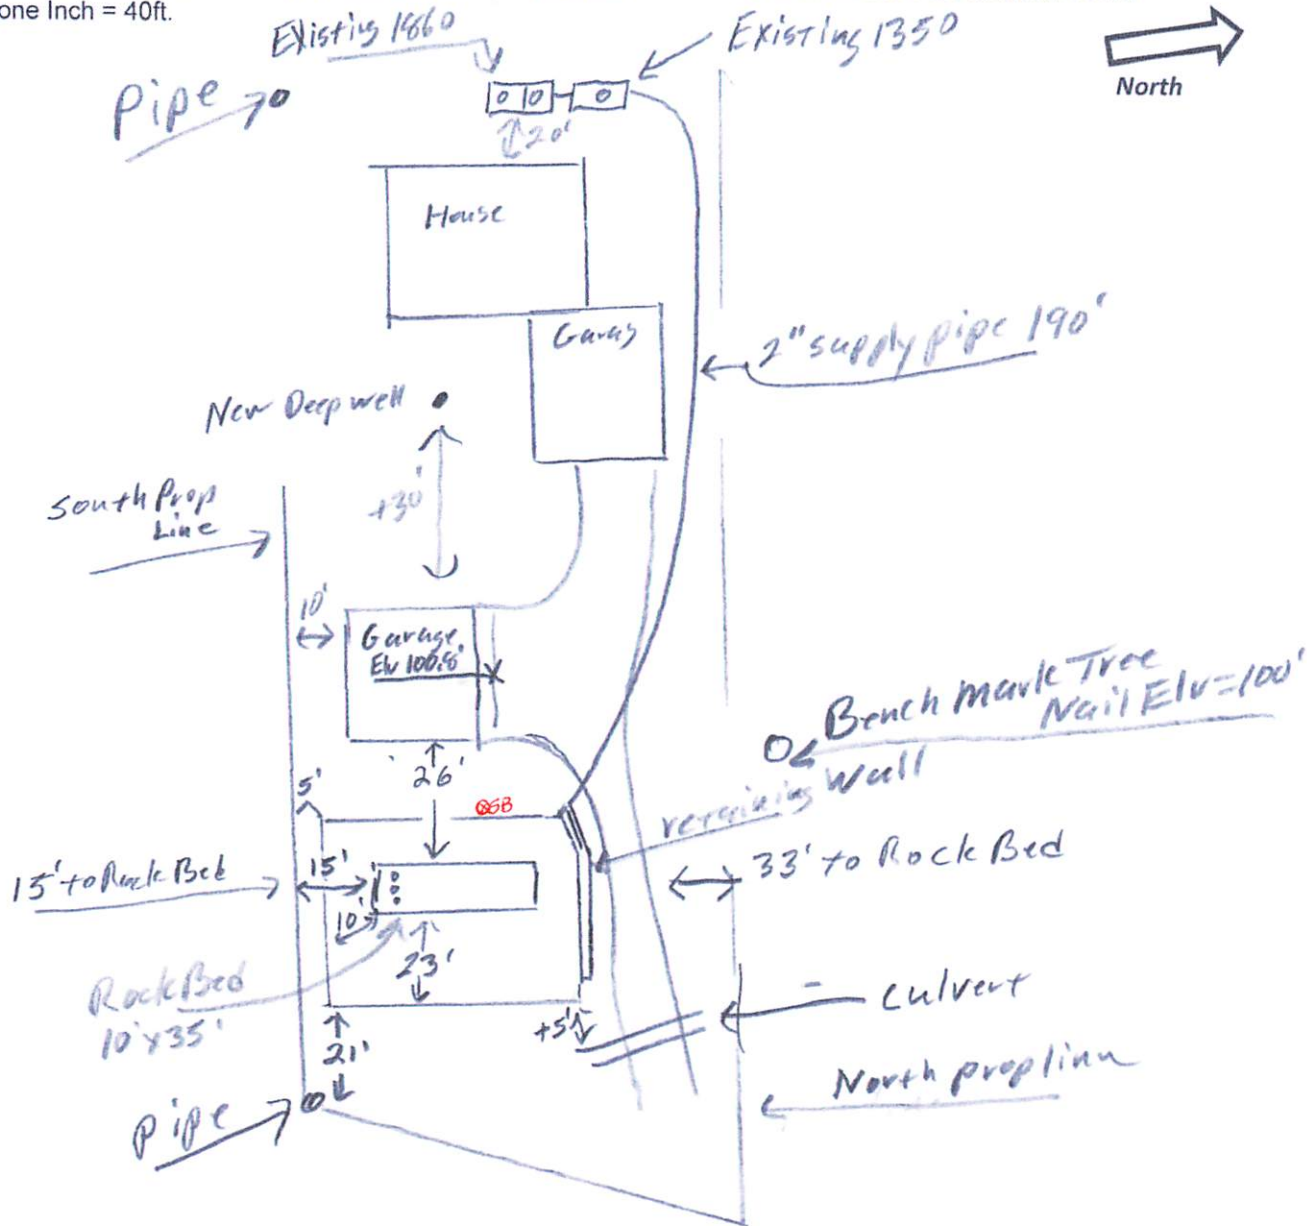 one Inch = 40ft.
Existing 1860
Existing 1350
North
Pipe
20'
House
Garag
2" supply pipe 190'
New Deep well
+30'
South Prop
Line
10'
Garage
Elv 100.8'
Bench mark Tree
Nail Elv=100'
26'
5'
retaining Wall
15' to Rock Bed
15'
33' to Rock Bed
10'
23'
Rock Bed
10'x35'
culvert
+5'
21'
North prop linn
Pipe